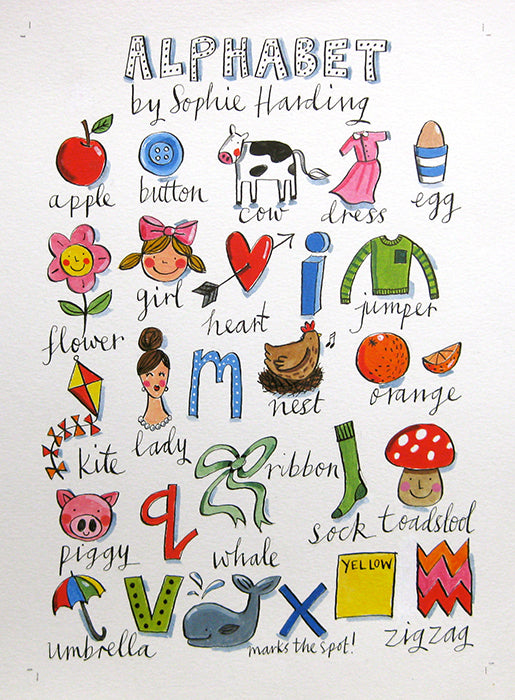 ALPHABET
by Sophie Harding
apple
button
cow
dress
egg
flower
girl
heart
i
jumper
kite
lady
m
nest
orange
piggy
q
ribbon
sock
toadstool
umbrella
v
whale
x
marks the spot!
YELLOW
zigzag